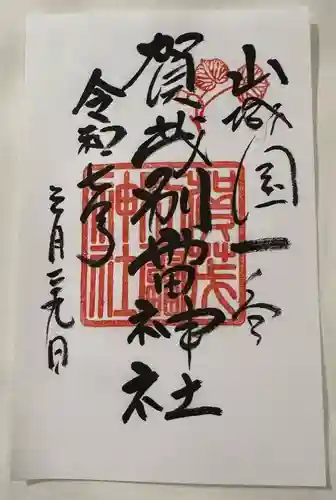 山城国一之宮
賀茂別雷神社
令和七年
三月二九日
賀茂
別雷
神社